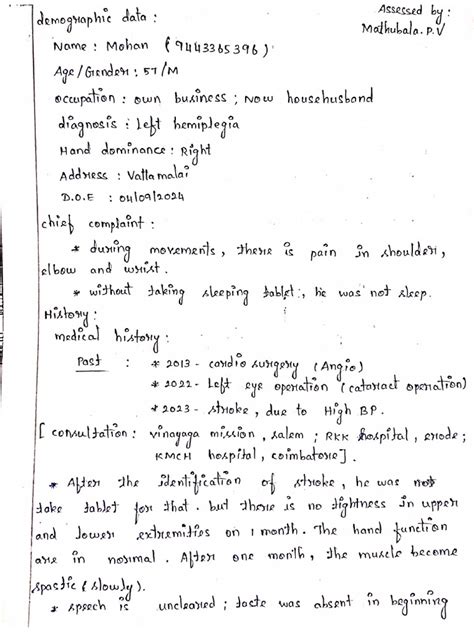 Assessed by :
Mathubala. P.V
demographic data :
Name : Mohan (9443365396)
Age/Gender : 57/M
occupation : own business ; Now househusband
diagnosis : Left hemiplegia
Hand dominance : Right
Address : Vattamalai
D.O.E : 04/09/2024
chief complaint :
* during movements, there is pain in shoulder,
elbow and wrist.
* without taking sleeping tablet, he was not sleep.
History :
medical history :
Past : * 2013 - cardio surgery (Angio)
* 2022 - Left eye operation (cataract operation)
* 2023 - stroke, due to High BP.
[ consultation : vinagaga mission, salem ; RKK hospital, erode ;
KMCH hospital, coimbatore ].
* After the identification of stroke, he was not
take tablet for that. but there is no tightness in upper
and lower extremities on 1 month. The hand function
are in normal. After one month, the muscle become
spastic (slowly).
* speech is uncleared ; taste was absent in beginning